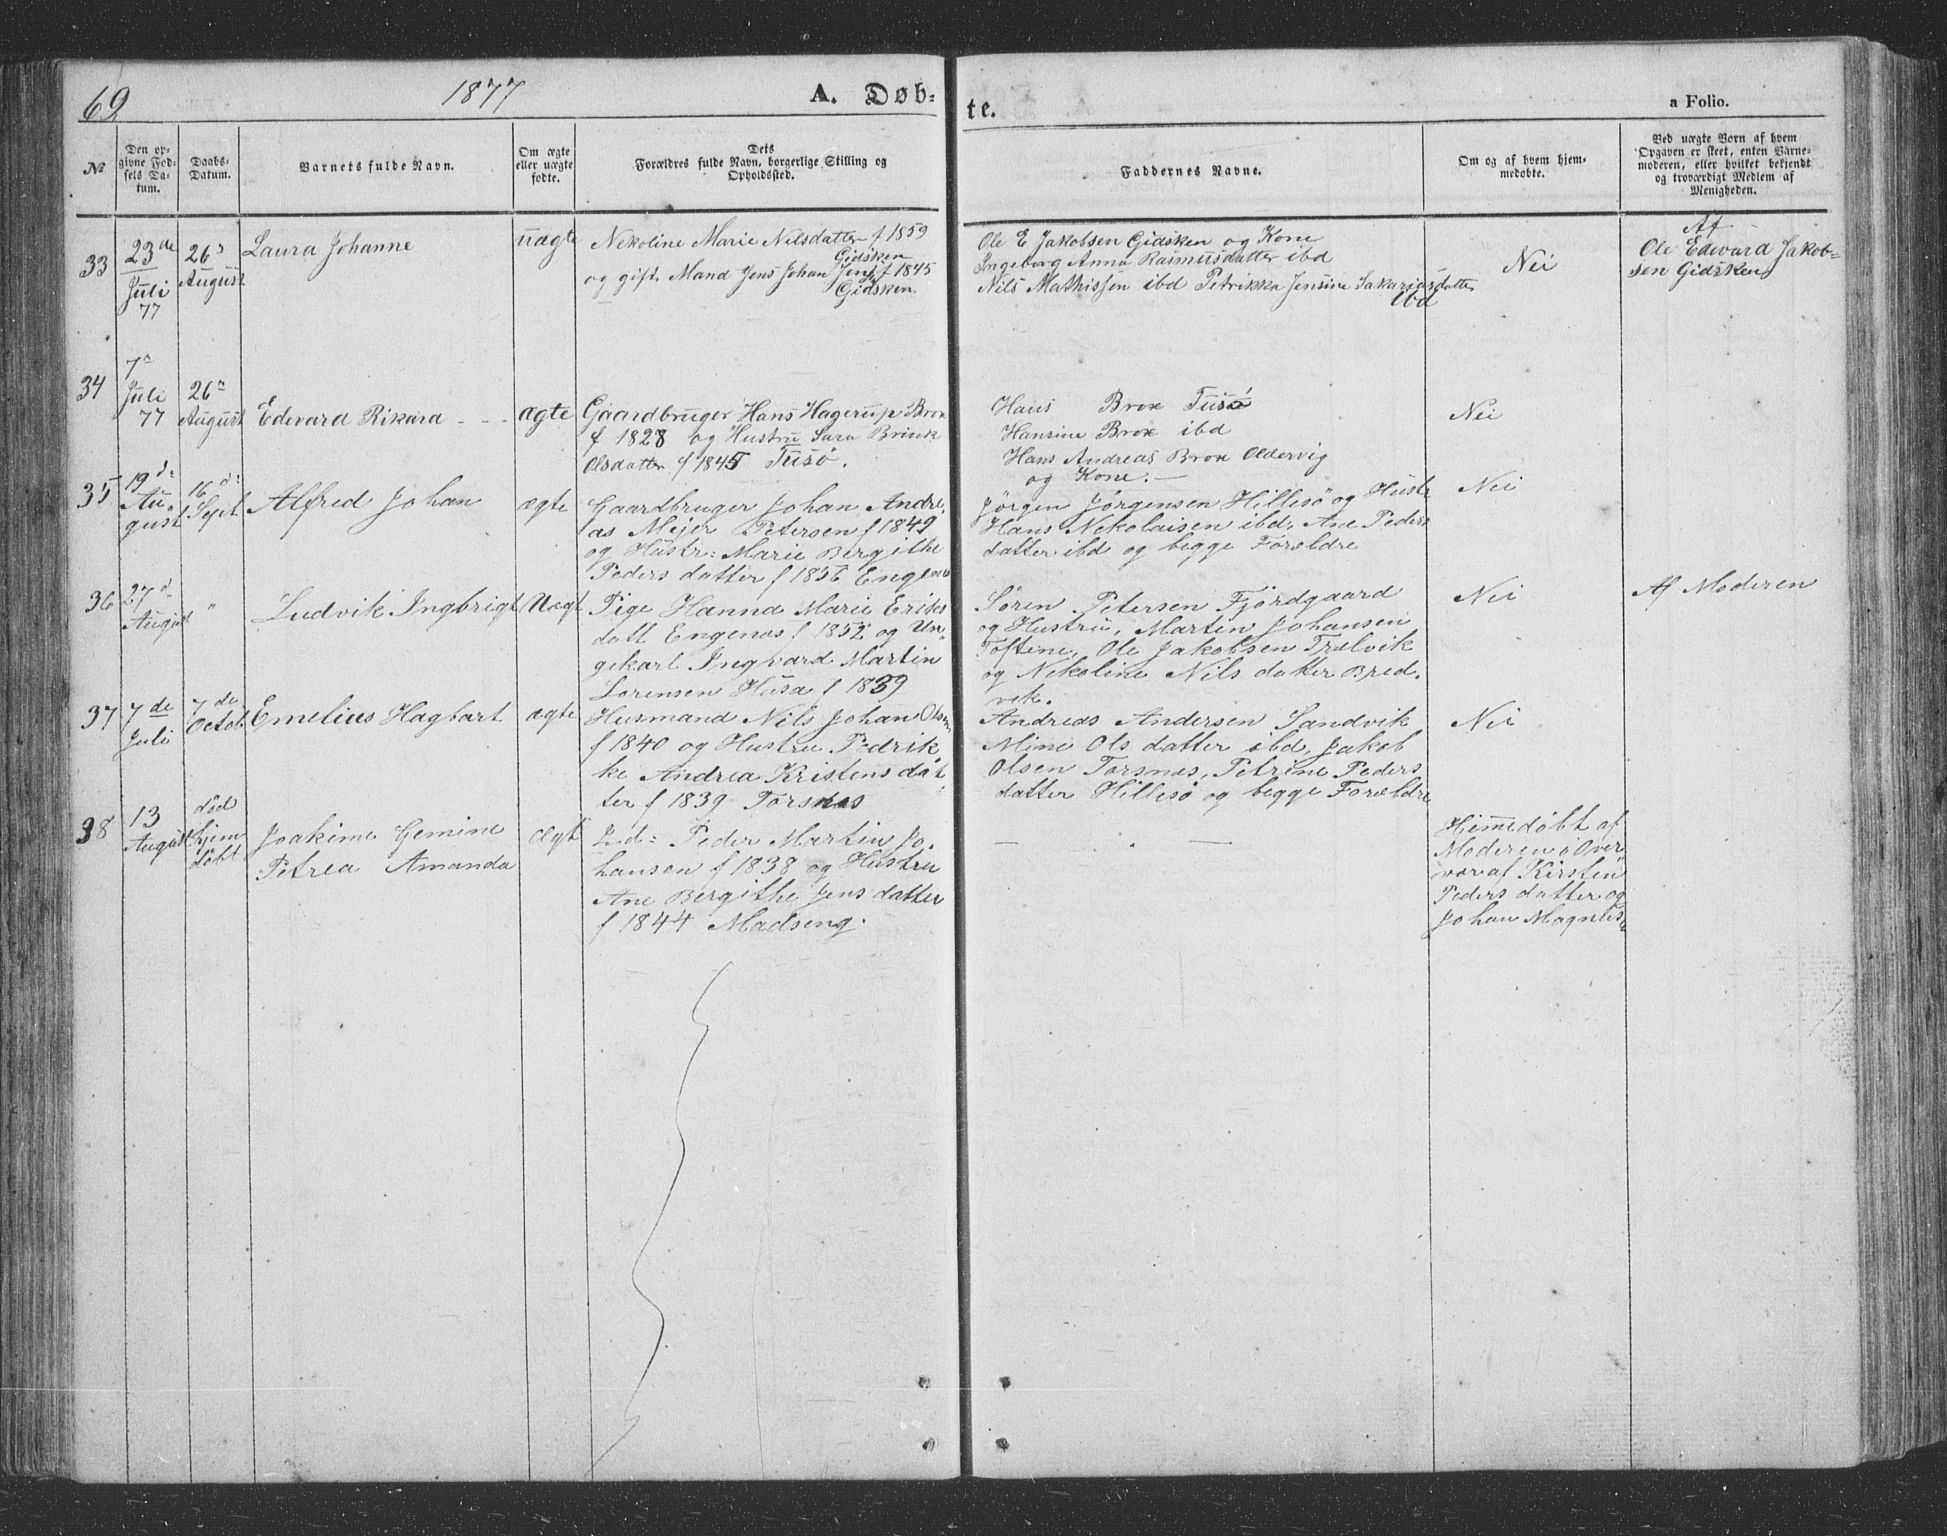 69
1877
A. Døb-
te.
a Folio.
No
Den op-
givne Fød-
sels Da-
tum.
Daabs-
Datum.
Barnets fulde Navn.
Om ægte
eller uægte
fødte.
Dets
Forældres fulde Navn, borgerlige Stilling og
Opholdssted.
Faddernes Navne.
Om og af hvem hjem-
medøbte.
Ved uægte Børn af hvem
Opgaven er skeet, enten Barne-
moderen, eller hvilket bekjendt
og troværdigt Medlem af
Menigheden.
33
23de
Juli
77
26d
August
Laura Johanne
uægte
Nekoline Marie Nilsdatter f 1859
Gidsken
og gift. Mand Jens Johan Jens f 1845
Gidsken.
Ole E Jakobsen Gidsken og Kone
Ingeborg Anna Rasmusdatter ibd
Nils Mathissen ibd Petrikka Jensine Sakariasdatter
ibd
Nei
Af
Ole Edevard Jakob-
sen Gidsken
34
7d
Juli
77
26d
August
Edevard Rikard - - -
ægte
Gaardbruger Hans Hagerup Brox
f 1828 og Hustru Sara Brink
Olsdatter f 1845 Tusø.
Hans Brox Tusø
Hansine Brox ibd
Hans Andreas Brox Oldervig
og Kone. -
Nei
35
19d:
Au-
gust
16d:
Sept
Alfred Johan
ægte
Gaardbruger Johan Andre-
as Mejer Petersen f 1849
og Hustr: Marie Bergithe
Peders datter f 1856 Engenes
Jørgen Jørgensen Hillesö og Hustr
Hans Nekolaisen ibd, Ane Peders
datter ibd og begge Foræeldre
Nei
36
27d
August
"
Ludvik Ingbrigt
Uægt
Pige Hanna Marie Eriks
datt Engenæs f 1852 og Un-
gekarl Ingvard Martin
Lorensen Husø f 1839
Søren Petersen Fjordgaard
og Hustru, Martin Johansen
Toftene, Ole Jakobsen Trælvik
og Nekoline Nils datter Bred-
vik.
Nei
Af Moderen
37
7de
Juli
7de
Octob
Emelius Hagbart
ægte
Husmand Nils Johan Olsen
f 1840 og Hustru Pedrik
ke Andrea Kristensdat
ter f 1839 Torsnæs
Andreas Andersen Sandvik
Mine Ols datter ibd, Jakob
Olsen Torsnæs, Petrine Peders
datter Hillesö og begge Forældre
Nei
38
13
August
død
hjem
døbt
Joakime Gemine
Petrea Amanda
Ægt
Ind: Peder Martin Jo-
hansen f 1838 og Hustru
Ane Bergithe Jens datter
f 1844 Madseng.
— —
Hjemmedøbt af
Moderen Over
vær af Kirsten
Peders datter og
Johan Magnus